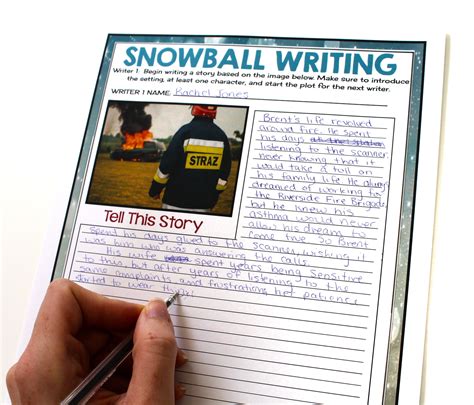 SNOWBALL WRITING
Writer 1: Begin writing a story based on the image below. Make sure to introduce
the setting, at least one character, and start the plot for the next writer.
WRITER 1 NAME Rachel Jones
STRAZ
Brent's life revolved
around fire. He spent
his days
listening to the scanner,
never knowing that it
would take a toll on
his family life. He always
dreamed of working for
the Riverside Fire Brigade,
but he knew his
asthma would never
allow his dream to
come true. So Brent
Tell This Story
spent his days glued to the scanner, wishing it
was him who was answering the calls.
His wife spent years being sensitive
to this, but after years of listening to the
same complaints and frustrations her patience
started to wear thin.